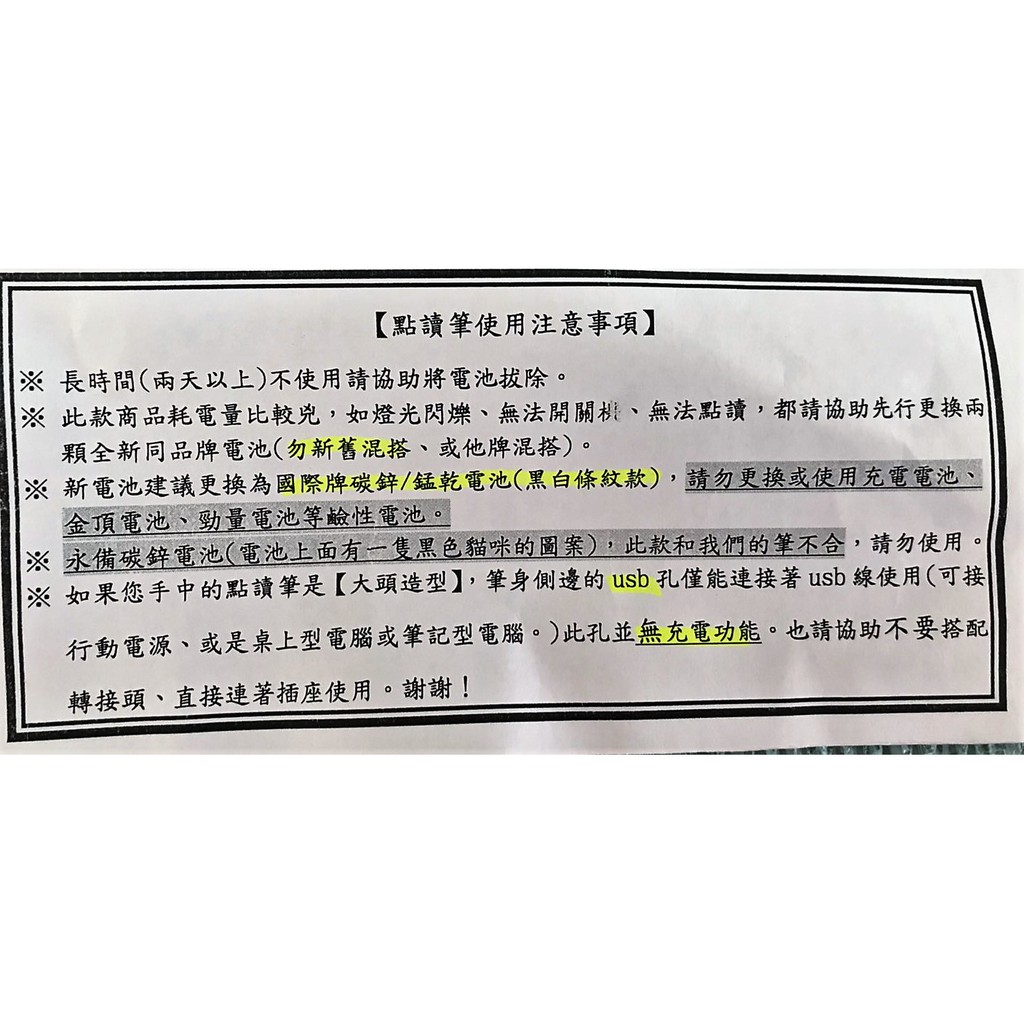 【點讀筆使用注意事項】
※ 長時間(兩天以上)不使用請協助將電池拔除。
※ 此款商品耗電量比較兇，如燈光閃爍、無法開關機、無法點讀，都請協助先行更換兩
顆全新同品牌電池(勿新舊混搭、或他牌混搭)。
※ 新電池建議更換為國際牌碳鋅/錳乾電池(黑白條紋款)，請勿更換或使用充電電池、
金頂電池、勁量電池等鹼性電池。
※ 永備碳鋅電池(電池上面有一隻黑色貓咪的圖案)，此款和我們的筆不合，請勿使用。
※ 如果您手中的點讀筆是【大頭造型】，筆身側邊的 usb 孔僅能連接著 usb 線使用(可接
行動電源、或是桌上型電腦或筆記型電腦。)此孔並無充電功能。也請協助不要搭配
轉接頭、直接連著插座使用。謝謝！